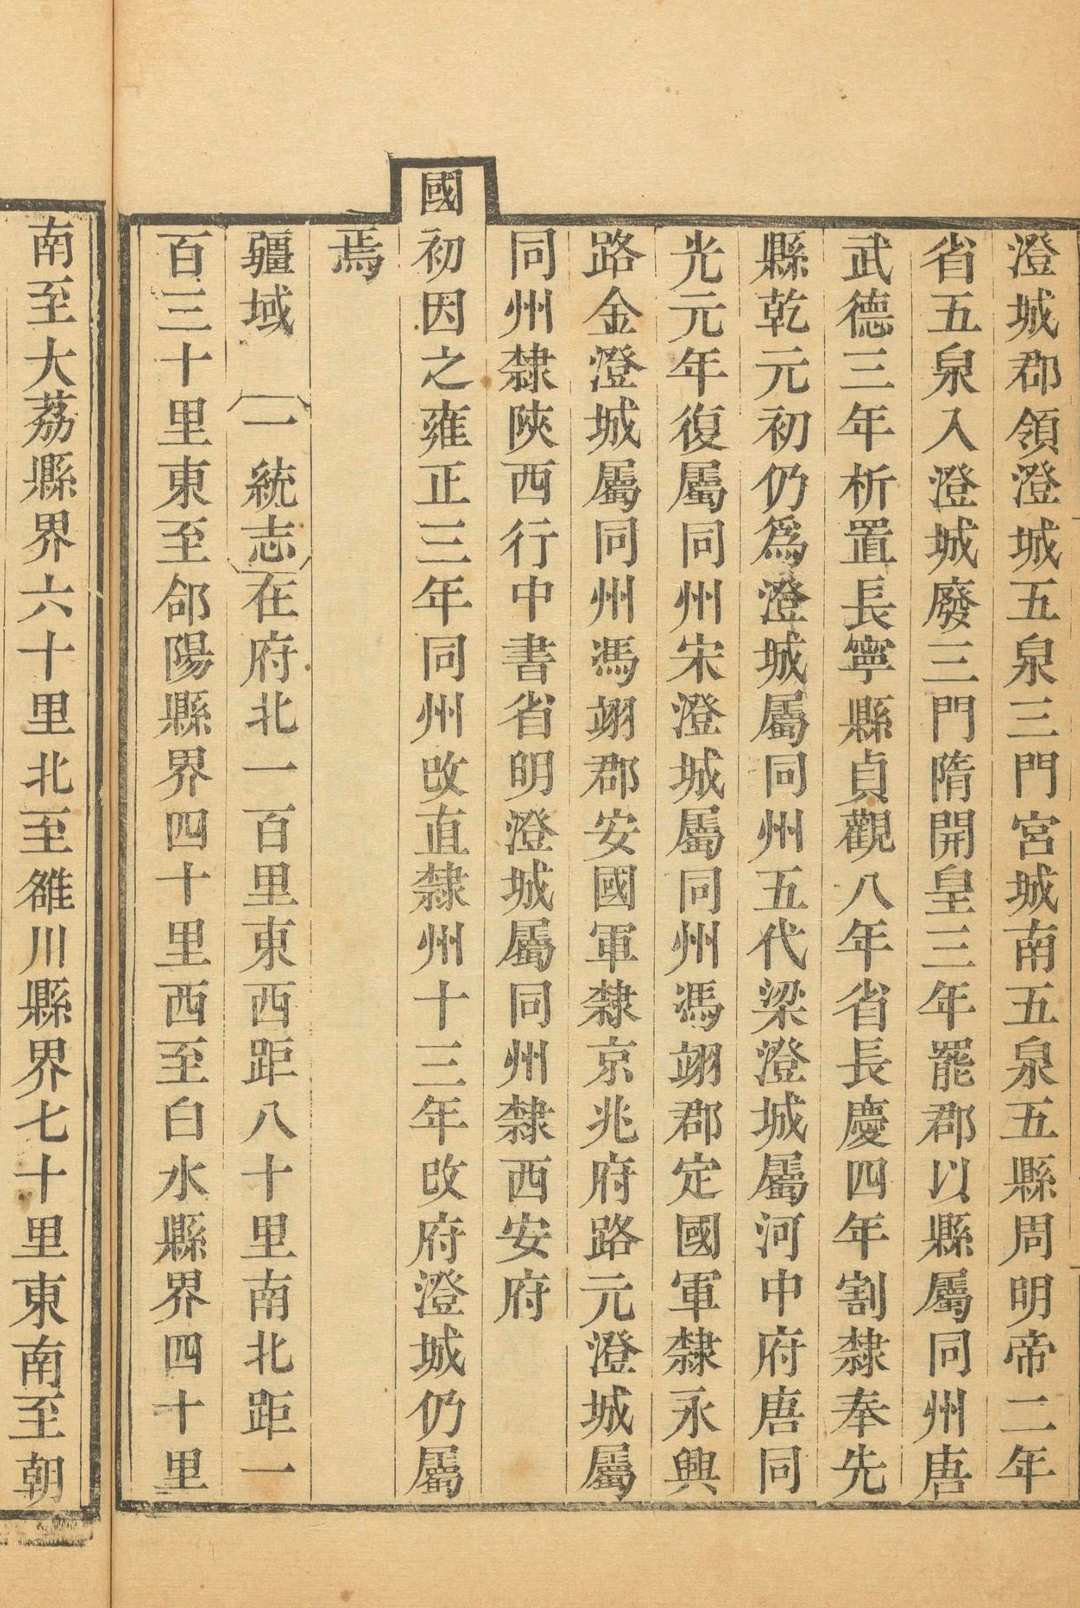 澄城郡領澄城五泉三門宮城南五泉五縣周明帝二年
省五泉入澄城廢三門隋開皇三年罷郡以縣屬同州唐
武德三年析置長寧縣貞觀八年省長慶四年割隸奉先
縣乾元初仍爲澄城屬同州五代梁澄城屬河中府唐同
光元年復屬同州宋澄城屬同州馮翊郡定國軍隸永興
路金澄城屬同州馮翊郡安國軍隸京兆府路元澄城屬
同州隸陝西行中書省明澄城屬同州隸西安府
國初因之雍正三年同州改直隸州十三年改府澄城仍屬
焉
疆域〔一統志〕在府北一百里東西距八十里南北距一
百三十里東至郃陽縣界四十里西至白水縣界四十里
南至大荔縣界六十里北至雒川縣界七十里東南至朝